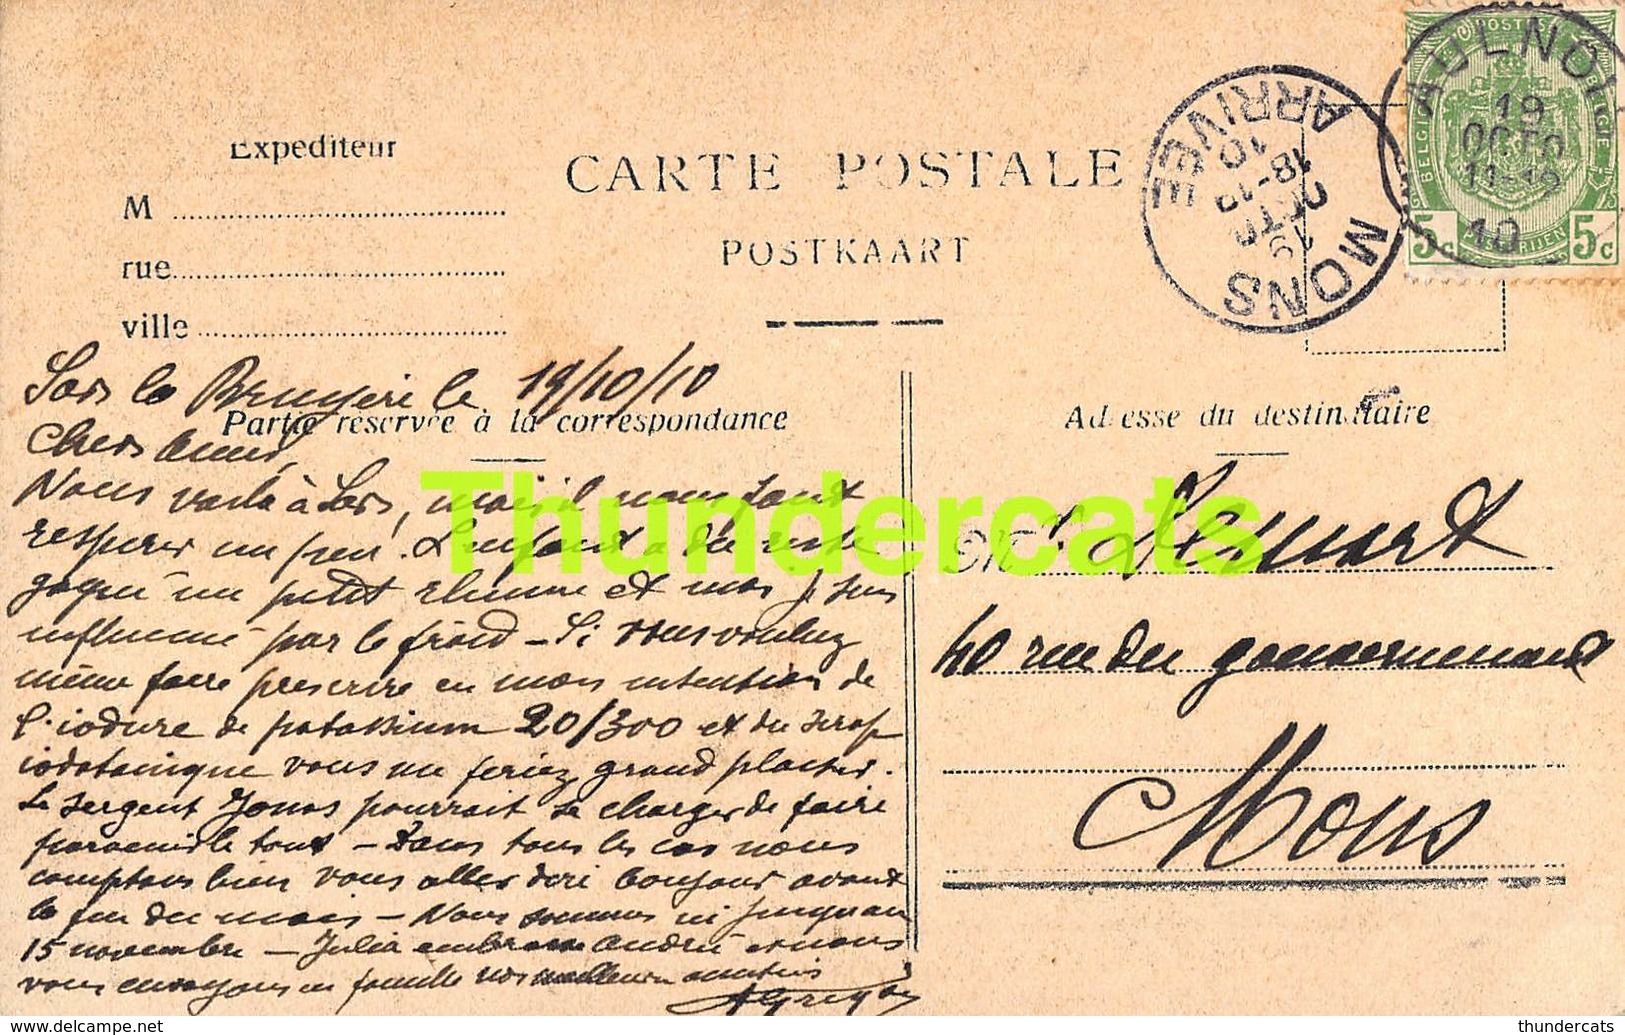 Expediteur
M
rue
ville
CARTE POSTALE
POSTKAART
MONS
ARRIVÉE
19
OCTO
18-19
10
AULNOI
19
OCTO
11-12
10
POSTES
BELGIQUE BELGIE
5c 5c
Partie réservée à la correspondance
Adresse du destinataire
Sars la Bruyère le 19/10/10
Chers Amis,
Nous voilà à Sars, mais il nous faut
respirer un peu. L'enfant a du reste
gagné un petit rhume et moi j'suis
influencé par le froid — Si vous vouliez
même faire prescrire en mon intention de
l'iodure de potassium 20/300 et du sirop
iodotannique vous me feriez grand plaisir.
Le sergent Jonas pourrait se charger de faire
parvenir le tout — Dans tous les cas nous
comptons bien vous aller dire bonjour avant
la fin du mois — Nous sommes ici jusqu'au
15 novembre — Julia embrasse André et nous
vous envoyons en famille nos meilleures amitiés
Mr Lenoirt
40 rue du gouvernement
Mons
Thundercats
www.delcampe.net
thundercats